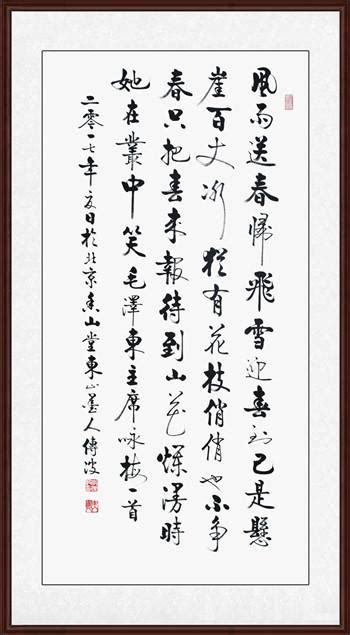 風雨送春歸飛雪迎春到已是懸
崖百丈冰犹有花枝俏俏也不争
春只把春来報待到山花爛漫時
她在叢中笑毛澤東主席咏梅一首
二零一七年夏日於北京香山堂東山墨人傅波